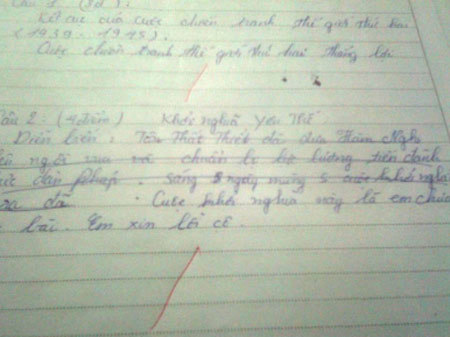 Câu 1 (3đ):
Kết cục của cuộc chiến tranh thế giới thứ hai
(1939 - 1945).
Cuộc chiến tranh thế giới thứ hai thắng lợi
Câu 2: (4 điểm) Khởi nghĩa Yên Thế
Diễn biến: Tôn Thất Thiết đã đưa Hàm Nghi
ngôi vua và chuẩn bị lực lượng tiến đánh
dân Pháp. sáng ngày mùng 5 cuộc khởi nghĩa
ra đã. Cuộc khởi nghĩa này là em chưa
bài. Em xin lỗi cô.